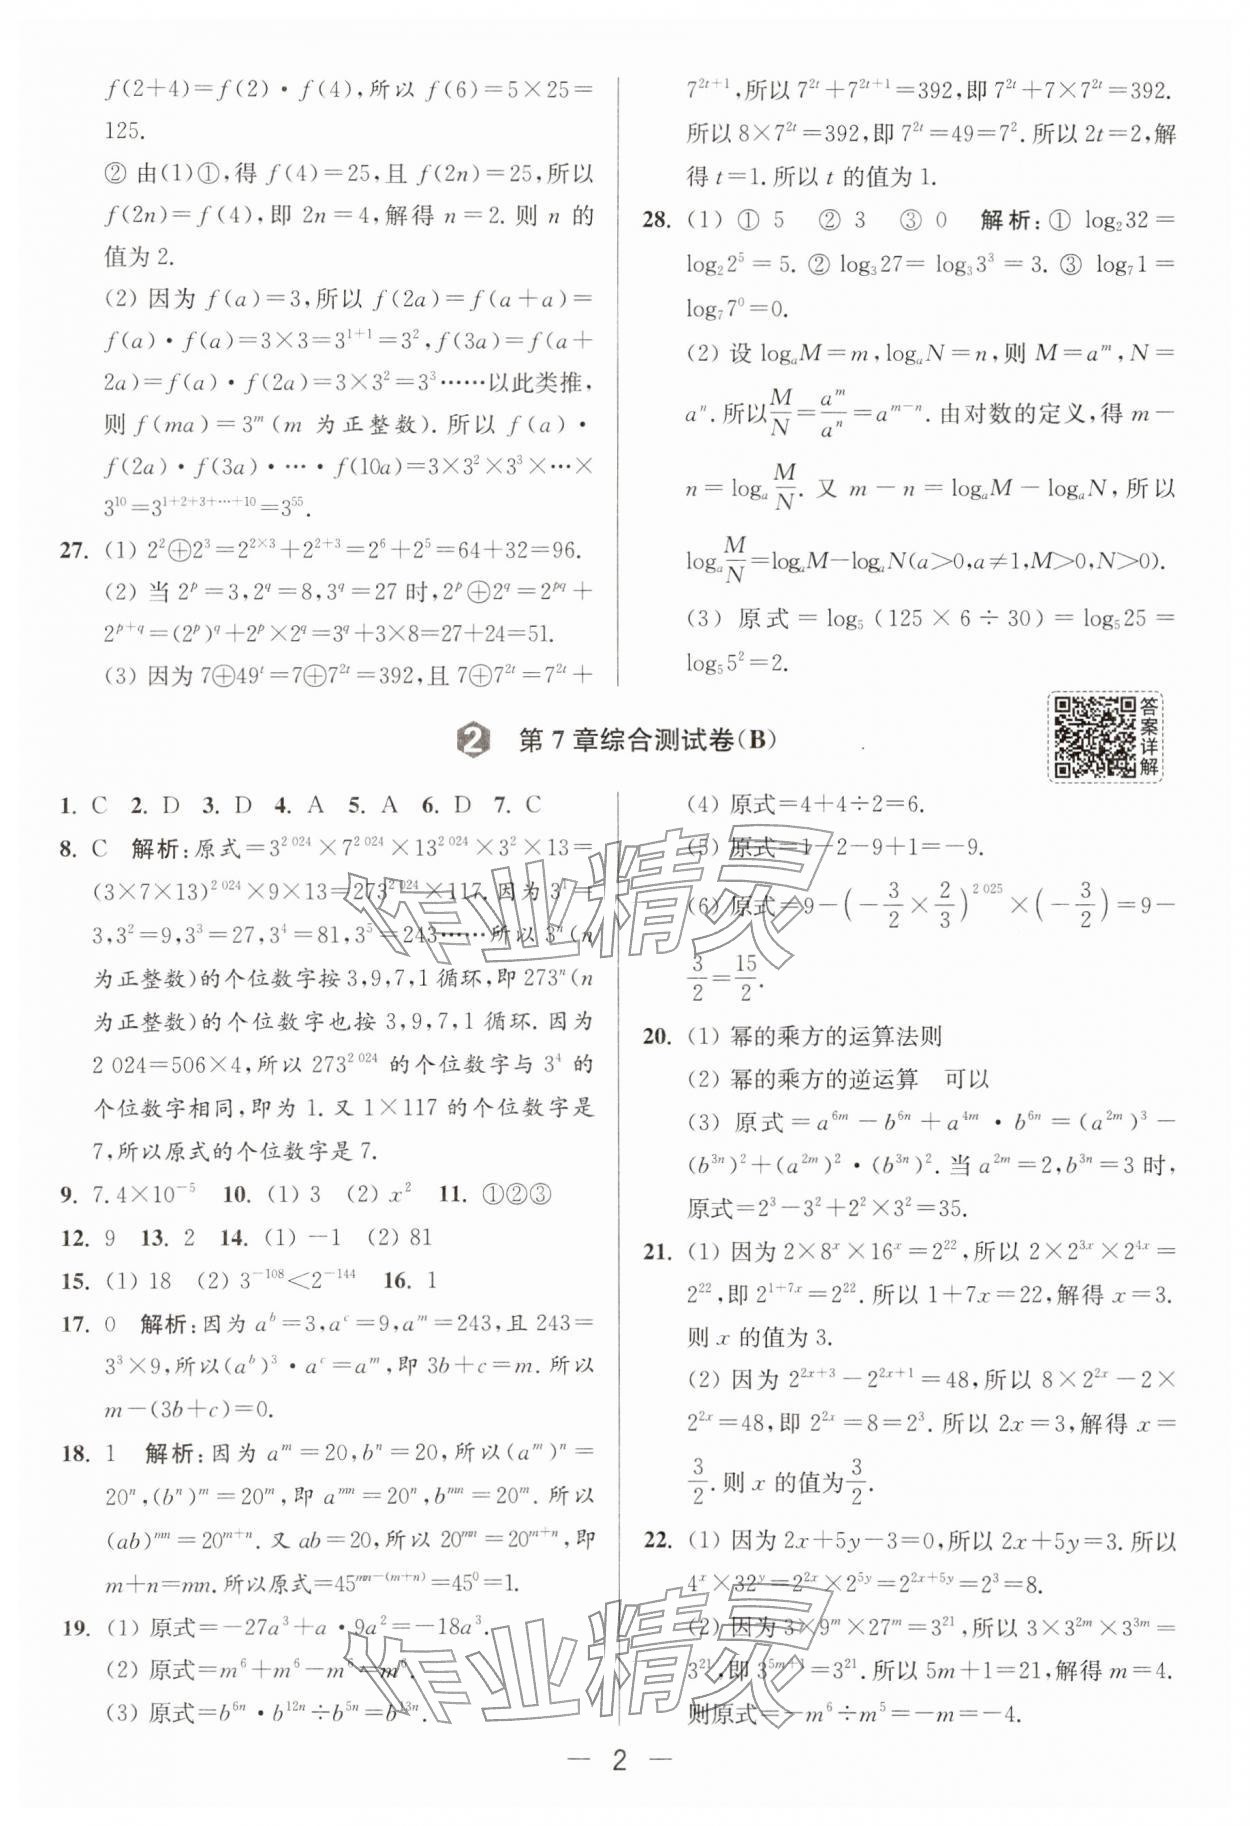 f(2+4)=f(2)·f(4),所以 f(6)=5×25=
125.
② 由(1)①,得 f(4)=25,且 f(2n)=25,所以
f(2n)=f(4),即 2n=4,解得 n=2.则 n 的
值为 2.
(2) 因为 f(a)=3,所以 f(2a)=f(a+a)=
f(a)·f(a)=3×3=3¹⁺¹=3²,f(3a)=f(a+
2a)=f(a)·f(2a)=3×3²=3³……以此类推,
则 f(ma)=3ᵐ(m 为正整数).所以 f(a)·
f(2a)·f(3a)·…·f(10a)=3×3²×3³×…×
3¹⁰=3^{1+2+3+…+10}=3⁵⁵.
27. (1) 2²⊕2³=2^{2×3}+2^{2+3}=2⁶+2⁵=64+32=96.
(2) 当 2^p=3,2^q=8,3^q=27 时,2^p⊕2^q=2^{pq}+
2^{p+q}=(2^p)^q+2^p×2^q=3^q+3×8=27+24=51.
(3) 因为 7⊕49^t=7⊕7^{2t}=392,且 7⊕7^{2t}=7^{2t}+
7^{2t+1},所以 7^{2t}+7^{2t+1}=392,即 7^{2t}+7×7^{2t}=392.
所以 8×7^{2t}=392,即 7^{2t}=49=7².所以 2t=2,解
得 t=1.所以 t 的值为 1.
28. (1) ① 5 ② 3 ③ 0 解析:① log₂32=
log₂2⁵=5. ② log₃27=log₃3³=3. ③ log₇1=
log₇7⁰=0.
(2) 设 logₐM=m,logₐN=n,则 M=a^m,N=
a^n.所以 M/N=a^m/a^n=a^{m-n}.由对数的定义,得 m-
n=logₐ M/N.又 m-n=logₐM-logₐN,所以
logₐ M/N=logₐM-logₐN(a>0,a≠1,M>0,N>0).
(3) 原式=log₅(125×6÷30)=log₅25=
log₅5²=2.
2 第 7 章综合测试卷(B)
答案详解
1. C 2. D 3. D 4. A 5. A 6. D 7. C
8. C 解析:原式=3^{2 024}×7^{2 024}×13^{2 024}×3²×13=
(3×7×13)^{2 024}×9×13=273^{2 024}×117.因为 3¹=
3,3²=9,3³=27,3⁴=81,3⁵=243……所以 3^n(n
为正整数)的个位数字按 3,9,7,1 循环,即 273^n(n
为正整数)的个位数字也按 3,9,7,1 循环.因为
2 024=506×4,所以 273^{2 024} 的个位数字与 3⁴ 的
个位数字相同,即为 1.又 1×117 的个位数字是
7,所以原式的个位数字是 7.
9. 7.4×10⁻⁵ 10. (1) 3 (2) x² 11. ①②③
12. 9 13. 2 14. (1) -1 (2) 81
15. (1) 18 (2) 3⁻¹⁰⁸<2⁻¹⁴⁴ 16. 1
17. 0 解析:因为 a^b=3,a^c=9,a^m=243,且 243=
3³×9,所以(a^b)³·a^c=a^m,即 3b+c=m.所以
m-(3b+c)=0.
18. 1 解析:因为 a^m=20,b^n=20,所以(a^m)^n=
20^n,(b^n)^m=20^m,即 a^{mn}=20^n,b^{mn}=20^m.所以
(ab)^{mn}=20^{m+n}.又 ab=20,所以 20^{mn}=20^{m+n},即
m+n=mn.所以原式=45^{mn-(m+n)}=45⁰=1.
19. (1) 原式=-27a³+a·9a²=-18a³.
(2) 原式=m⁶+m⁶-m⁶=m⁶.
(3) 原式=b^{6n}·b^{12n}÷b^{5n}=b^{13n}.
(4) 原式=4+4÷2=6.
(5) 原式=1-2-9+1=-9.
(6) 原式=9-(-3/2×2/3)^{2 025}×(-3/2)=9-
3/2=15/2.
20. (1) 幂的乘方的运算法则
(2) 幂的乘方的逆运算 可以
(3) 原式=a^{6m}-b^{6n}+a^{4m}·b^{6n}=(a^{2m})³-
(b^{3n})²+(a^{2m})²·(b^{3n})².当 a^{2m}=2,b^{3n}=3 时,
原式=2³-3²+2²×3²=35.
21. (1) 因为 2×8^x×16^x=2²²,所以 2×2^{3x}×2^{4x}=
2²²,即 2^{1+7x}=2²².所以 1+7x=22,解得 x=3.
则 x 的值为 3.
(2) 因为 2^{2x+3}-2^{2x+1}=48,所以 8×2^{2x}-2×
2^{2x}=48,即 2^{2x}=8=2³.所以 2x=3,解得 x=
3/2.则 x 的值为 3/2.
22. (1) 因为 2x+5y-3=0,所以 2x+5y=3.所以
4^x×32^y=2^{2x}×2^{5y}=2^{2x+5y}=2³=8.
(2) 因为 3×9^m×27^m=3²¹,所以 3×3^{2m}×3^{3m}=
3²¹,即 3^{5m+1}=3²¹.所以 5m+1=21,解得 m=4.
则原式=-m⁶÷m⁵=-m=-4.
作业精灵
作业精灵
— 2 —